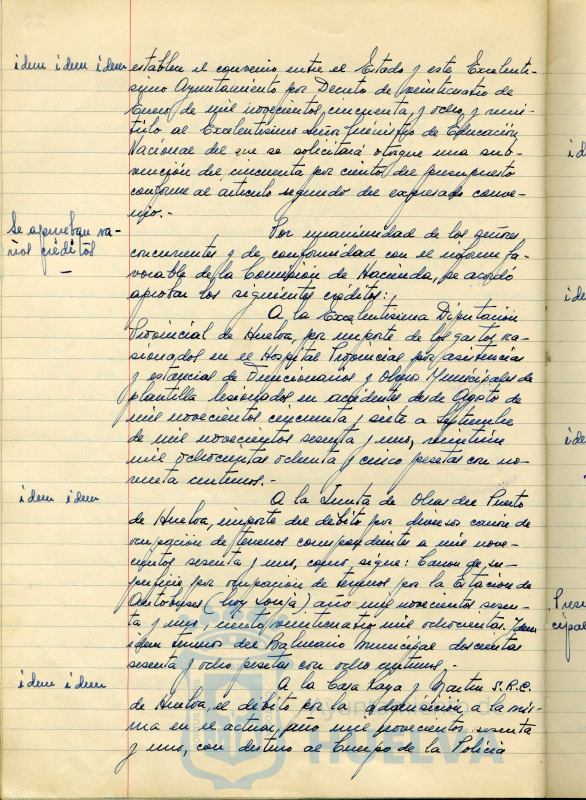 idem idem idem establece el convenio entre el Estado y este Excelentí-
simo Ayuntamiento por Decreto de veinticuatro de
Enero de mil novecientos cincuenta y ocho, y remi-
tirlo al Excelentísimo Señor Ministro de Educación
Nacional del que se solicitará otorgue una sub-
vención del cincuenta por ciento del presupuesto
conforme al artículo segundo del expresado conve-
nio.-
Se aprueban va-
rios créditos
Por unanimidad de los señores
concurrentes y de conformidad con el informe fa-
vorable de la Comisión de Hacienda, se acordó
aprobar los siguientes créditos:
A la Excelentísima Diputación
Provincial de Huelva, por importe de los gastos oca-
sionados en el Hospital Provincial por asistencias
y estancias de Funcionarios y Obreros Municipales de
plantilla lesionados en accidentes desde Agosto de
mil novecientos cincuenta y siete a Septiembre
de mil novecientos sesenta y uno, veintiun
mil ochocientas ochenta y cinco pesetas con no-
venta centimos.-
idem idem
A la Junta de Obras del Puerto
de Huelva, importe del débito por diversos canon de
ocupación de terrenos correspondientes a mil nove-
cientos sesenta y uno, como sigue: Canon de su-
perficie por ocupación de terrenos por la Estación de
Autobuses (hoy Lonja) año mil novecientos sesen-
ta y uno, ciento veinticuatro mil ochocientas. Idem
idem terrenos del Balneario Municipal doscientas
sesenta y ocho pesetas con ocho centimos.-
idem idem
A la Casa Raya y Martín S.R.C.
de Huelva, el débito por la adquisición a la mis-
ma en el actual año mil novecientos sesenta
y uno, con destino al Cuerpo de la Policía
Ayuntamiento de
HUELVA
id
ide
ide
Prese
cipal